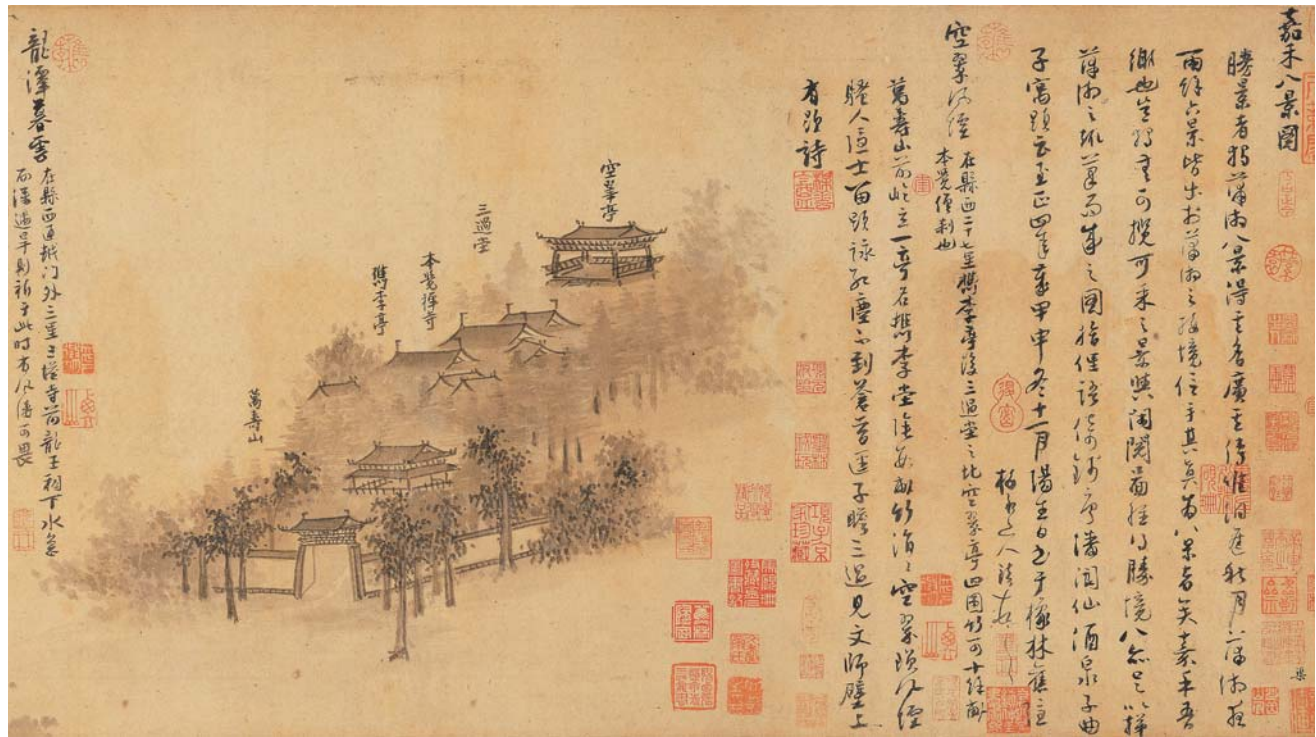 嘉禾八景圖
勝景者獨瀟湘八景得其名廣其傳惟洞庭秋月瀟湘夜
雨餘六景皆出於瀟湘之接境信乎其真為八景者矣嘉禾吾
鄉也豈獨無可攬可采之景歟閒閱圖經得勝境八亦足以梯
瀟湘之趣筆而成之圖拾俚語倚錢唐潘閬仙酒泉子曲
子寓題云至正四年歲甲申冬十一月陽生日書于橡林舊隱
梅花道人鎮頓首
空翠風煙 在縣西二十七里檇李亭後三過堂之北空翠亭四圍竹可十餘畝
本覺僧剎也
萬壽山前屹立一亭名檇李堂陰數畝竹涓涓空翠鎖風煙
騷人隱士留題詠紅塵不到蒼苔徑子瞻三過見文師壁上
有題詩
空翠亭
三過堂
本覺禪寺
檇李亭
萬壽山
龍潭暮雲 在縣西通越門外三里三塔寺前龍王祠下水急
而深遇旱則祈于此時有風濤可畏